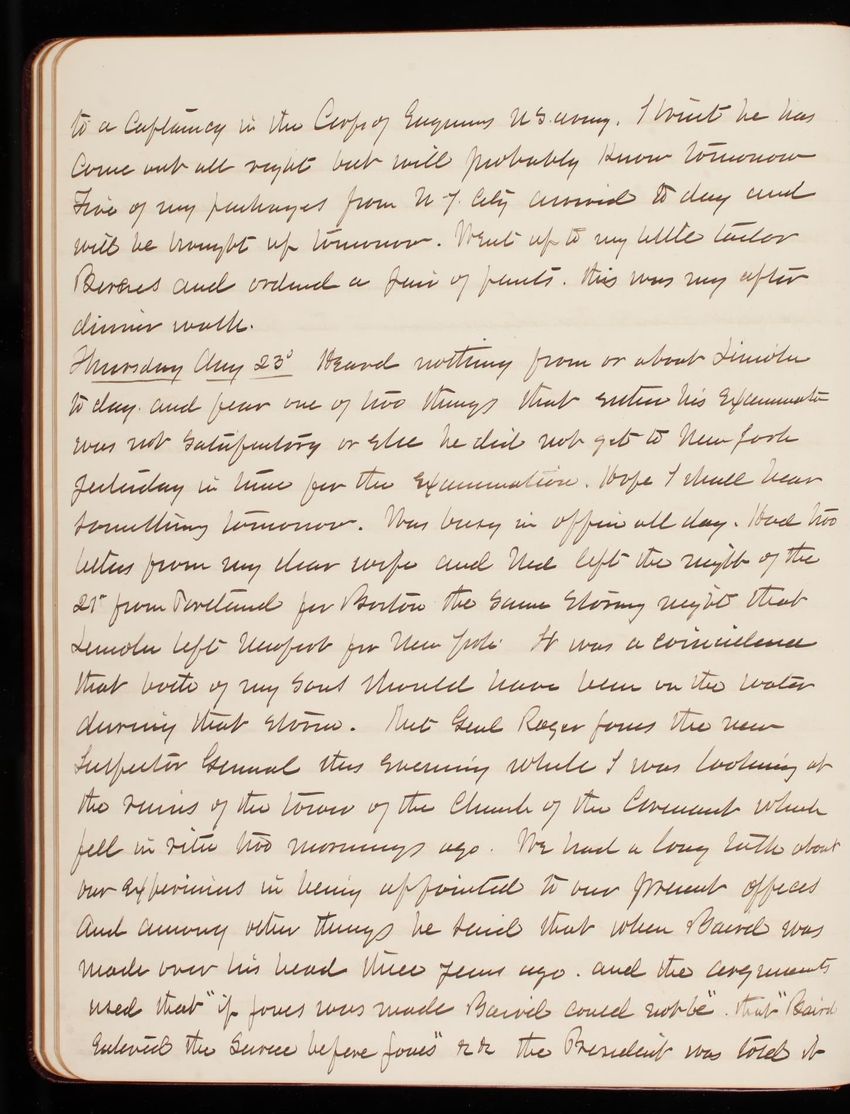 to a Captaincy in the Corps of Engineers U S. army. I trust he has
Come out all right but will probably Know tomorrow
Five of my packages from N Y. City arrived to day and
will be brought up tomorrow. Went up to my little tailor
and ordered a pair of pants. this was my after
dinner walk.
Thursday Aug 23d Heard nothing from or about Lincoln
to day. and fear one of two things that either his Examination
was not satisfactory or else he did not get to New York
yesterday in time for the Examination. Hope I shall hear
something tomorrow. Was busy in office all day. Had two
letters from my dear wife and Ned left the night of the
21st from Portland for Boston the same stormy night that
Lincoln left Newport for New York. It was a coincidence
that both of my sons should have been on the water
during that storm. Met Genl Roger Jones the new
Inspector General this evening while I was looking at
the ruins of the tower of the Church of the Covenant which
fell in ruin two mornings ago. We had a long talk about
our experiences in being appointed to our present offices
And among other things he said that when Baird was
made over his head three years ago. and the arguments
used that "if Jones was made Baird could not be". that "Baird
Entered the Service before Jones" &c &c the President was told it